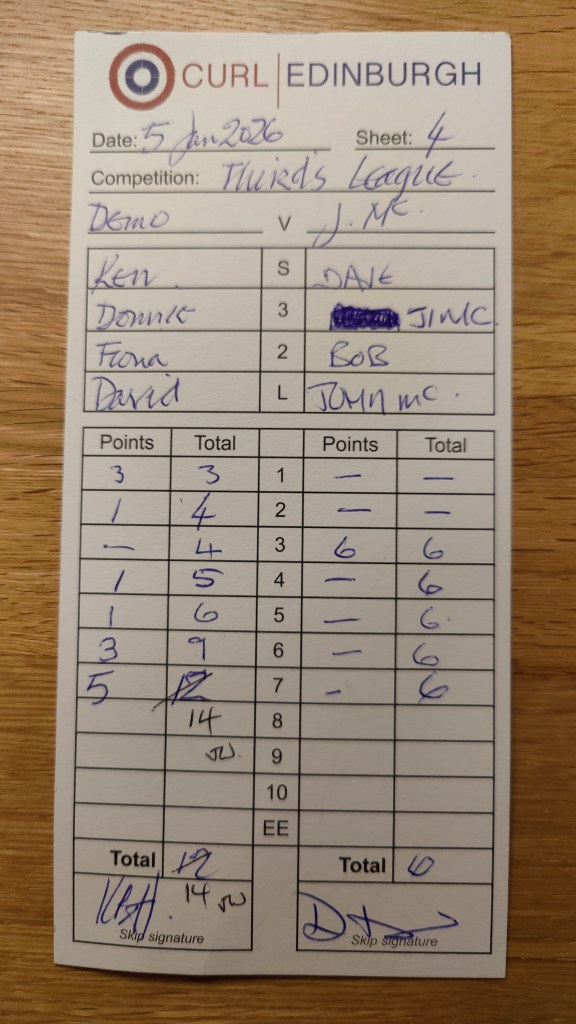 CURL | EDINBURGH
Date: 5 Jan 2026 Sheet: 4
Competition: Third's League.
Demo V J. Mc.
Ken S DAVE
Donnie 3 JIMC
Fiona 2 BOB
David L JOHN MC.
Points Total Points Total
3 3 1 — —
1 4 2 — —
— 4 3 6 6
1 5 4 — 6
1 6 5 — 6
3 9 6 — 6
5 12 7 - 6
14 8
JW. 9
10
EE
Total 12 Total 6
14 JW
Skip signature Skip signature